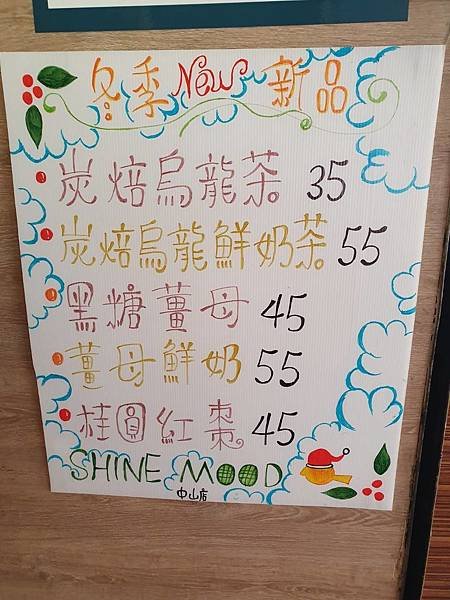 冬季 New 新品
炭焙烏龍茶 35
炭焙烏龍鮮奶茶 55
黑糖薑母 45
薑母鮮奶 55
桂圓紅棗 45
SHINE MOOD
中山店